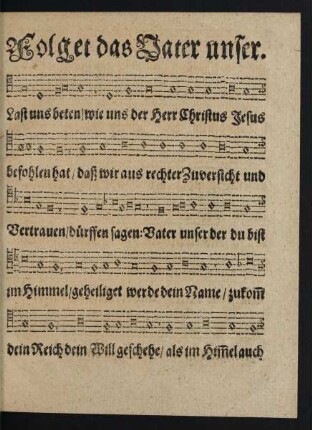 Folget das Vater unser.
Last uns beten/wie uns der Herr Christus Jesus
befohlen hat/daß wir aus rechter Zuversicht und
Vertrauen/dürffen sagen: Vater unser der du bist
im Himmel/geheiliget werde dein Name/zukom̃
dein Reich dein Will geschehe/als im Him̃el auch